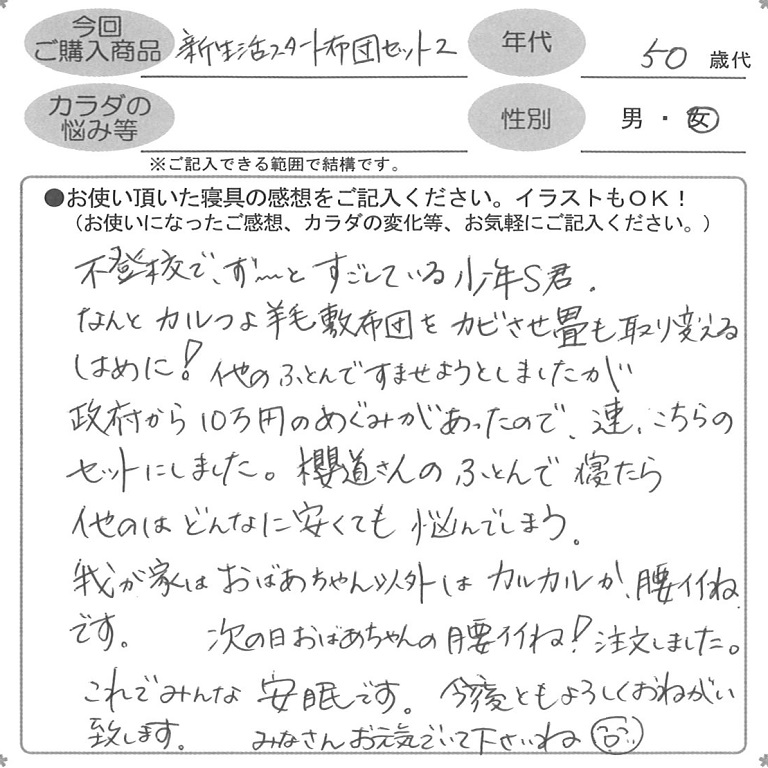 今回
ご購入商品
新生活スタート布団セット2
年代
50 歳代
カラダの
悩み等
性別
男・女
※ご記入できる範囲で結構です。
●お使い頂いた寝具の感想をご記入ください。イラストもOK!
(お使いになったご感想、カラダの変化等、お気軽にご記入ください。)
不登校で、ず〜っとすごしている少年S君。
なんとカルつよ羊毛敷布団をカビさせ畳も取り変える
はめに!他のふとんですませようとしましたが
政府から10万円のめぐみがあったので、連、こちらの
セットにしました。櫻道さんのふとんで寝たら
他のはどんなに安くても悩んでしまう。
我が家はおばあちゃん以外はカルカルか、腰イイね
です。 次の日おばあちゃんの腰イイね!注文しました。
これでみんな安眠です。今後ともよろしくおねがい
致します。 みなさんお元気でいて下さいね